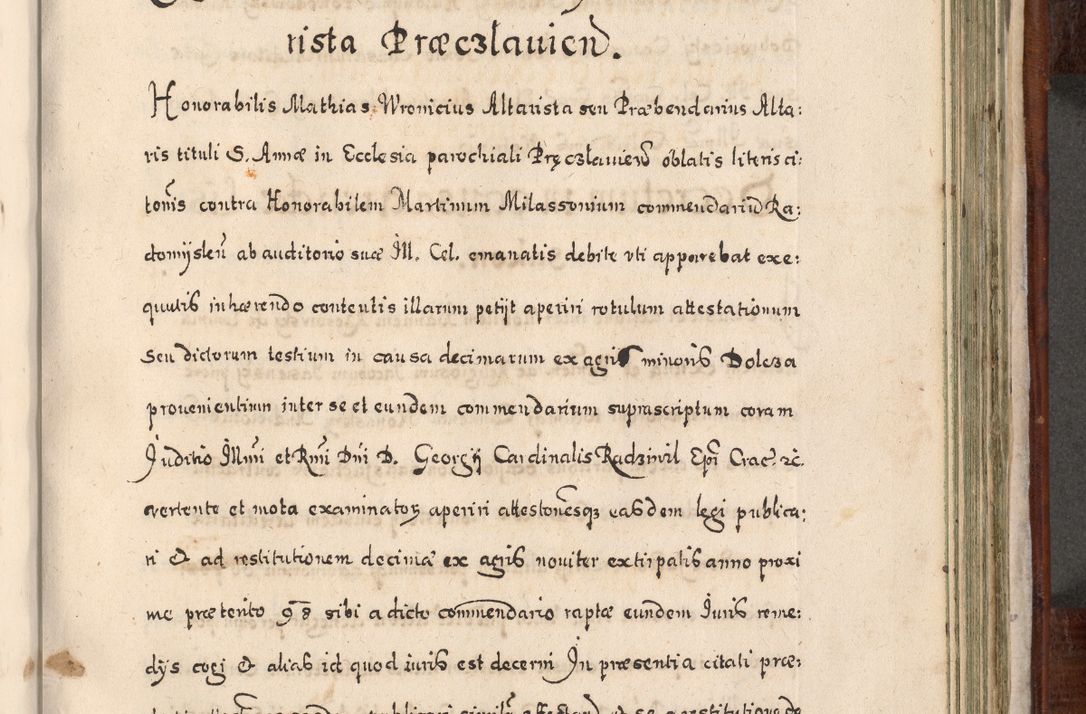 rista Præczlauien̄.
Honorabilis Mathias Wronicius Altarista seu Præbendarius Alta:
ris tituli S. Annæ in Ecclesia parochiali Pręczlauien̄ oblatis literis ci:
tōnis contra Honorabilem Martinum Milassonium commendariū Ra:
domyslen̄ ab auditorio suæ Ill. Cel. emanatis debite vti apparebat exe:
quutis inhærendo contentis illarum petijt aperiri rotulum attestationum
seu dictorum testium in causa decimarum ex agris minoris Dolcza
prouenientium inter se et eundem commendarium suprascriptum coram
Juditio Illmī et Rmī Dnī D. Georgij Cardinalis Radziwil Epī Crac. &c.
vertente et mota examinatoꝝ aperiri attestōnesqꝫ easdem legi publica:
ri & ad restitutionem decimæ ex agris nouiter extirpatis anno proxi
me præterito 98 sibi a dicto commendario raptæ eundem Juris reme:
dys cogi & alias id quod iuris est decerni In præsentia citati præ: